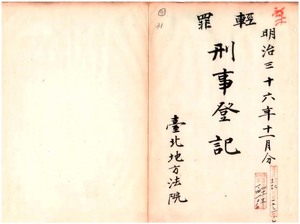 明治三十六年十一月分
輕罪
刑事登記
臺北地方法院